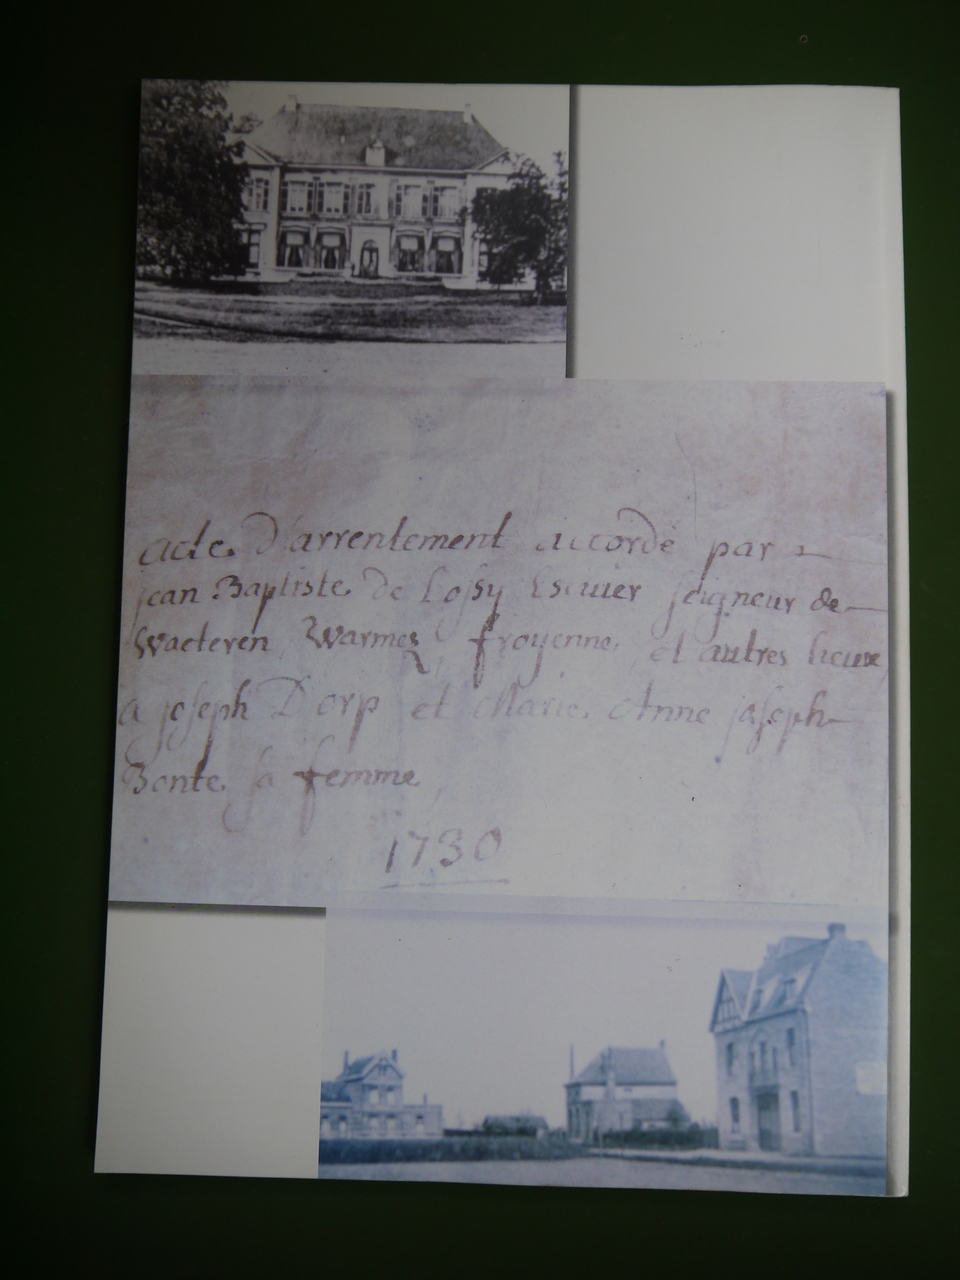 acte D'arrentement accordé par
jean Baptiste de Lossy Escuier seigneur de
Wacteren, Warmez, froyenne, et autres lieux,
a joseph Dorp et Marie Anne joseph
Bonte sa femme,
1730